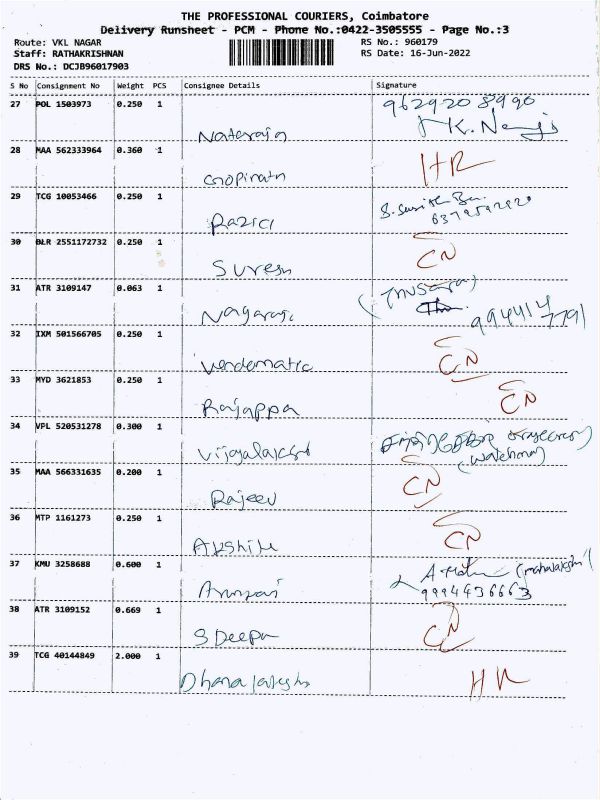 THE PROFESSIONAL COURIERS, Coimbatore
Delivery Runsheet - PCM - Phone No.:0422-3505555 - Page No.:3
Route: VKL NAGAR RS No.: 960179
Staff: RATHAKRISHNAN RS Date: 16-Jun-2022
DRS No.: DCJB96017903
S No Consignment No Weight PCS Consignee Details Signature
27 POL 1503973 0.250 1 9629208990
Nataraja K.
28 MAA 562333964 0.360 1 HR
Gopinath
29 TCG 10053466 0.250 1 6379592920
Razici
30 BLR 2551172732 0.250 1 CN
Suresh
31 ATR 3109147 0.063 1
Nagaraj 9944147791
32 IXM 501566705 0.250 1 CN
Vendomatic
33 MYD 3621853 0.250 1 CN
Rajappa
34 VPL 520531278 0.300 1
Vijayalakshmi (watchman)
35 MAA 566331635 0.200 1 CN
Rajeev
36 MTP 1161273 0.250 1 CN
Akshill
37 KMU 3258688 0.600 1 (mahalakshmi)
9994436663
38 ATR 3109152 0.669 1 CN
S Deepa
39 TCG 40144849 2.000 1 HR
Dhanalakshmi